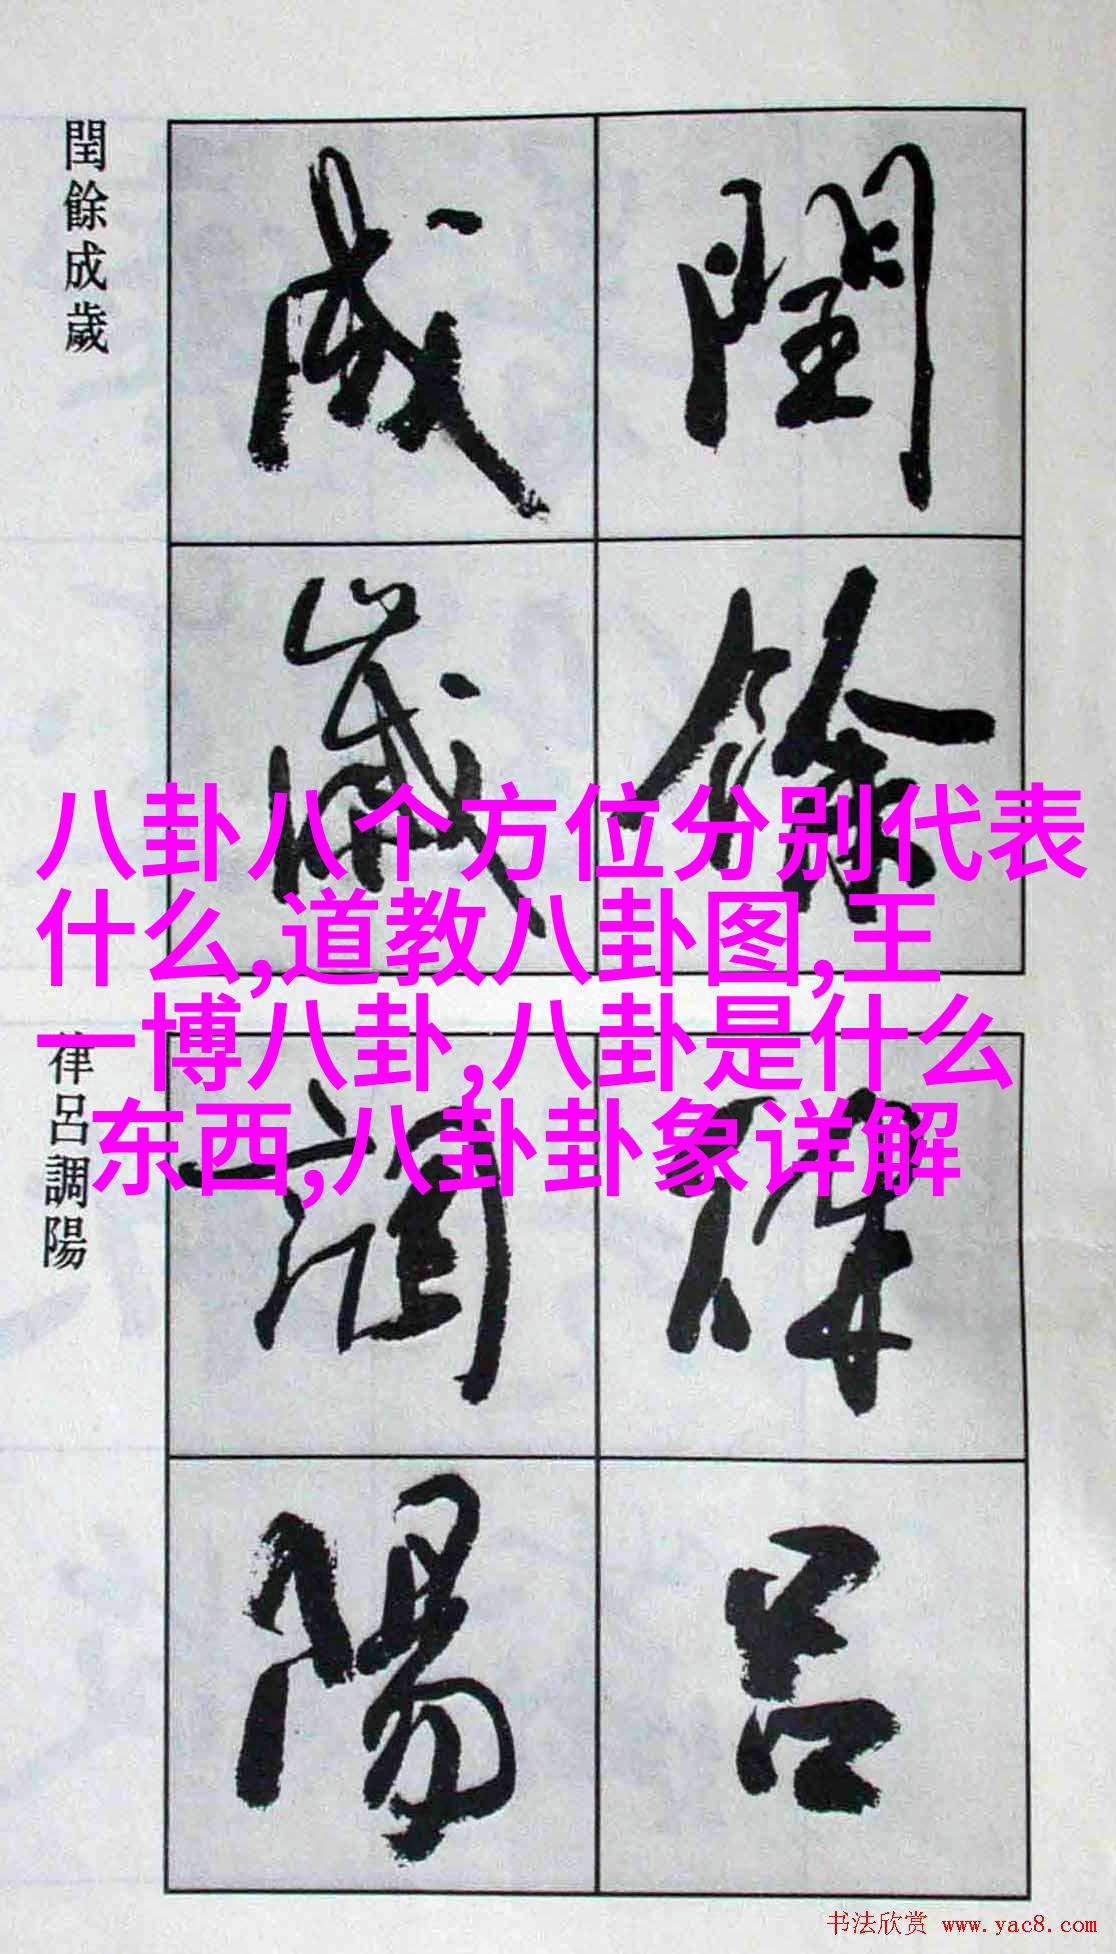 閏餘成歲
閏餘
成歲
八卦八个方位分别代表
什么,道教八卦图,王
一博八卦,八卦是什么
东西,八卦卦象详解
律呂調陽
律呂
調陽
书法欣赏 www.yac8.com